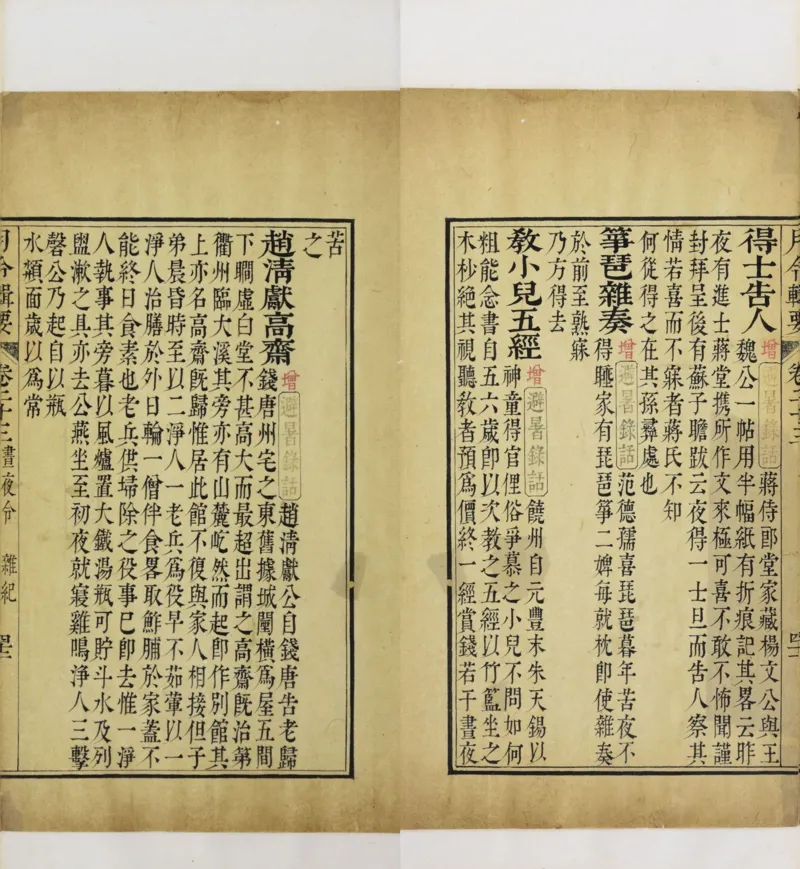 月令輯要 卷二十三
得士告人 增 避暑錄話 蔣侍郎堂家藏楊文公與王
魏公一帖用半幅紙有折痕記其畧云昨
夜有進士蔣堂携所作文來極可喜不敢不怖聞謹
封拜呈後有蘇子瞻跋云夜得一士旦而告人察其
情若喜而不寐者蔣氏不知
何從得之在其孫彝處也
箏琶雜奏 增 避暑錄話 范德孺喜琵琶暮年苦夜不
得睡家有琵琶箏二婢每就枕即使雜奏
於前至熟寐
乃方得去
教小兒五經 增 避暑錄話 饒州自元豐末朱天錫以
神童得官俚俗爭慕之小兒不問如何
粗能念書自五六歲即以次教之五經以竹籃坐之
木杪絕其視聽教者預爲價終一經賞錢若干晝夜
苦
之
趙淸獻高齋 增 避暑錄話 趙淸獻公自錢唐告老歸
錢唐州宅之東舊據城闉橫爲屋五間
下瞷虛白堂不甚高大而最超出謂之高齋旣治第
衢州臨大溪其旁亦有山麓屹然而起即作別館其
上亦名高齋旣歸惟居此館不復與家人相接但子
弟晨昏時至以二淨人一老兵爲役早不茹葷以一
淨人治膳於外日輪一僧伴食畧取鮮脯於家蓋不
能終日食素也老兵供埽除之役事已卽去惟一淨
人執事其旁暮以風爐置大鐵湯瓶可貯斗水及列
盥漱之具亦去公燕坐至初夜就寢雞鳴淨人三擊
磬公乃起自以瓶
水頮面歲以爲常
月令輯要 卷二十三 晝夜令 雜紀